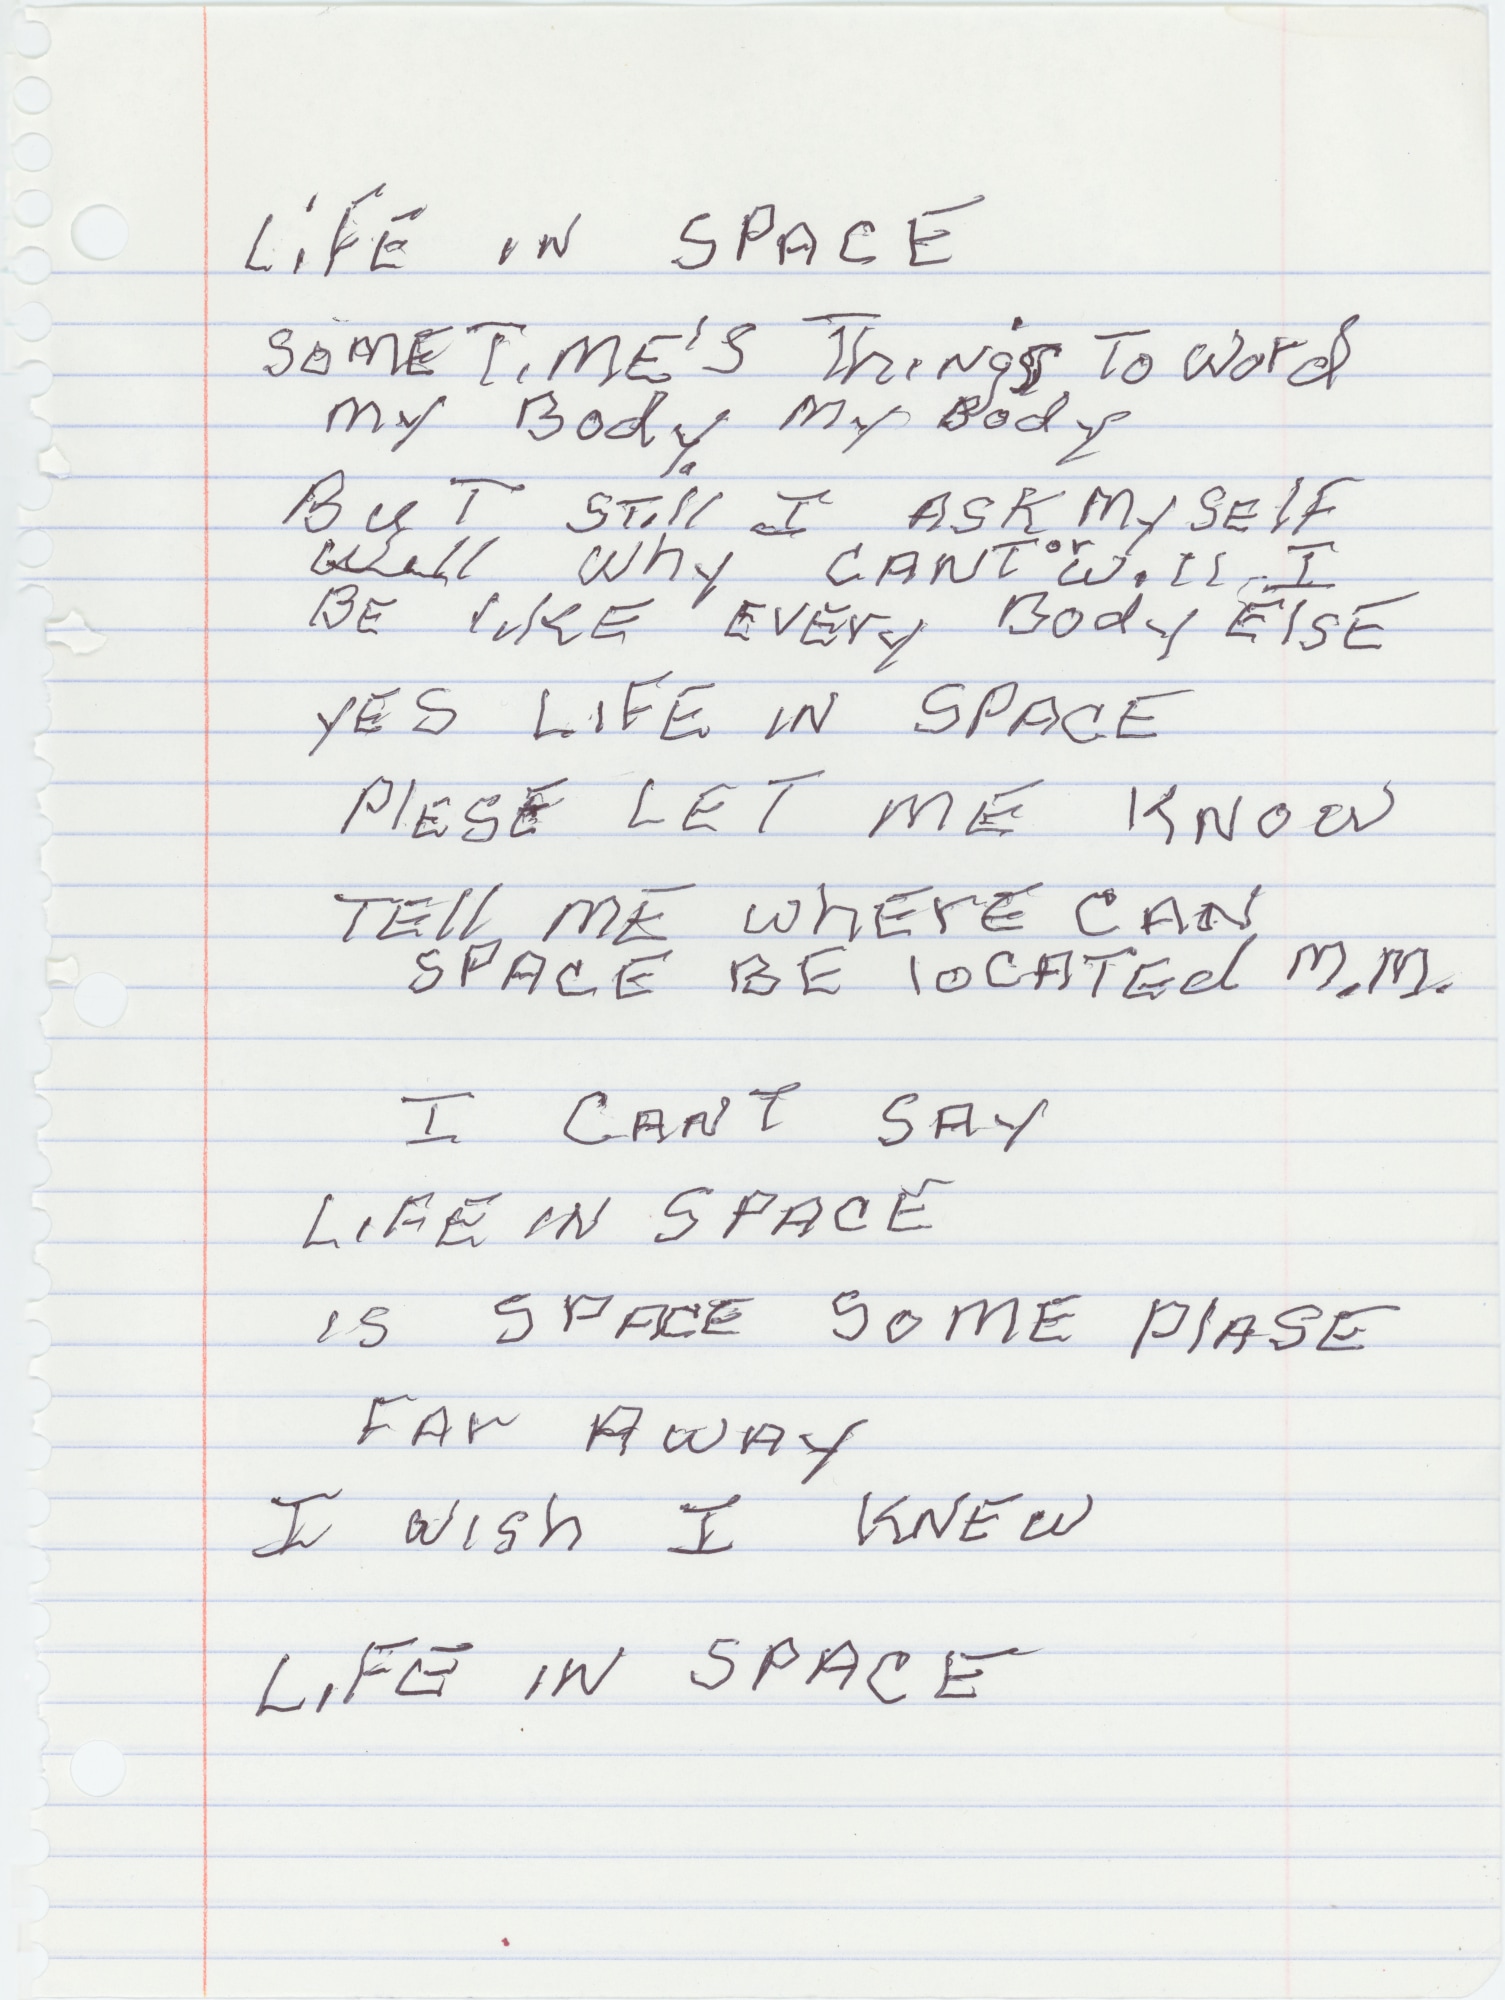 LiFE iN SPACE
SOMETiME'S ThiNgs To word
my Body, My Body
BuT STill I ASK MySElF
well why CANT or will I
BE liKE EVEry Body ElSE
yES LIFE IN SPACE
PlESE LET ME KNOW
TEll ME whErE CAN
SPACE BE loCATEd M.M.
I CAN'T SAY
LiFE IN SPACE
iS SPACE SOME PlASE
FAr AWAY
I wiSh I KNEW
LiFE iN SPACE